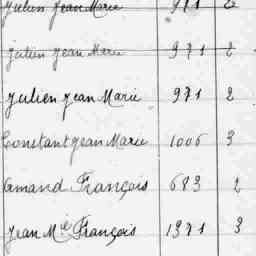 Julien Jean Marie 971 2
Julien Jean Marie 971 2
Julien Jean Marie 971 2
Constant Jean Marie 1006 3
Amand François 683 2
Jean Mie François 1371 3